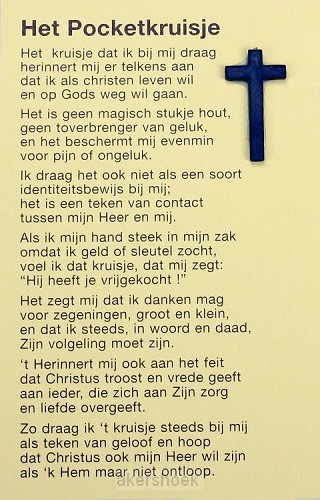 Het Pocketkruisje
Het kruisje dat ik bij mij draag
herinnert mij er telkens aan
dat ik als christen leven wil
en op Gods weg wil gaan.
Het is geen magisch stukje hout,
geen toverbrenger van geluk,
en het beschermt mij evenmin
voor pijn of ongeluk.
Ik draag het ook niet als een soort
identiteitsbewijs bij mij;
het is een teken van contact
tussen mijn Heer en mij.
Als ik mijn hand steek in mijn zak
omdat ik geld of sleutel zocht,
voel ik dat kruisje, dat mij zegt:
“Hij heeft je vrijgekocht !”
Het zegt mij dat ik danken mag
voor zegeningen, groot en klein,
en dat ik steeds, in woord en daad,
Zijn volgeling moet zijn.
‘t Herinnert mij ook aan het feit
dat Christus troost en vrede geeft
aan ieder, die zich aan Zijn zorg
en liefde overgeeft.
Zo draag ik ‘t kruisje steeds bij mij
als teken van geloof en hoop
dat Christus ook mijn Heer wil zijn
als ‘k Hem maar niet ontloop.
akershoek